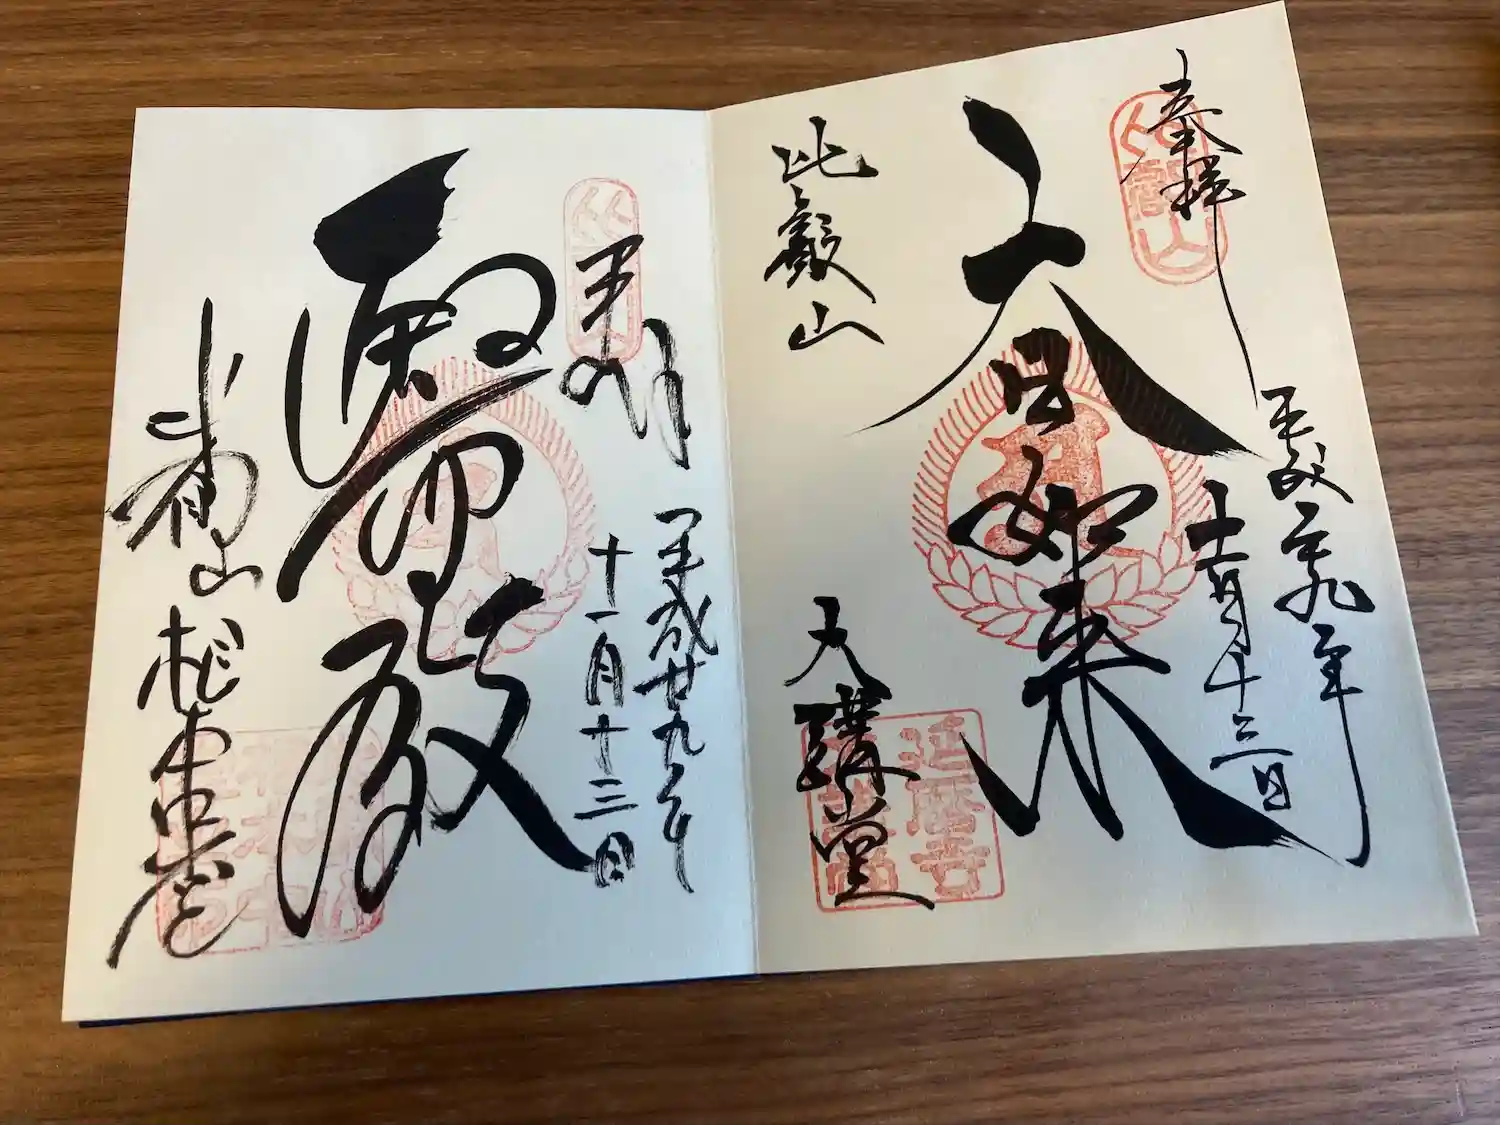 奉拝
平成二十九年
十一月十三日
大日如来
比叡山
大講堂
奉拝
平成廿九年
十一月十三日
醫王殿
比叡山
根本中堂